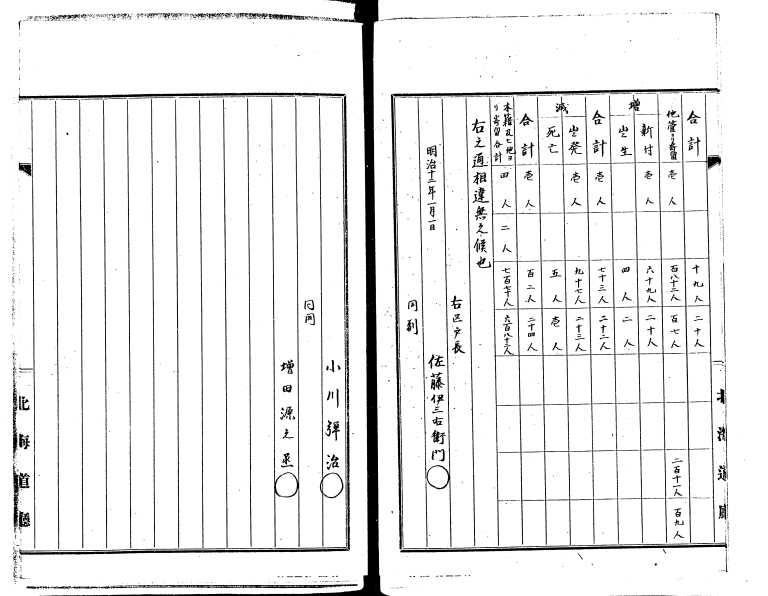 合計 十九人 二十人
他管ヨリ寄留 壱人 百八十二人 百七人 二百十一人 百九人
増
新付 壱人 六十九人 二十人
出生 四人 二人
合計 壱人 七十三人 二十二人
減
出発 壱人 九十七人 二十三人
死亡 五人 壱人
合計 壱人 百二人 二十四人
本籍及ヒ他ヨリ寄留合計 四人 二人 七百七十人 六百八十三人
右之通相違無之候也
右区戸長
明治十二年一月一日
佐藤伊三右衛門
同副
小川弾治
同同
増田源之丞
北海道廳
北海道廳